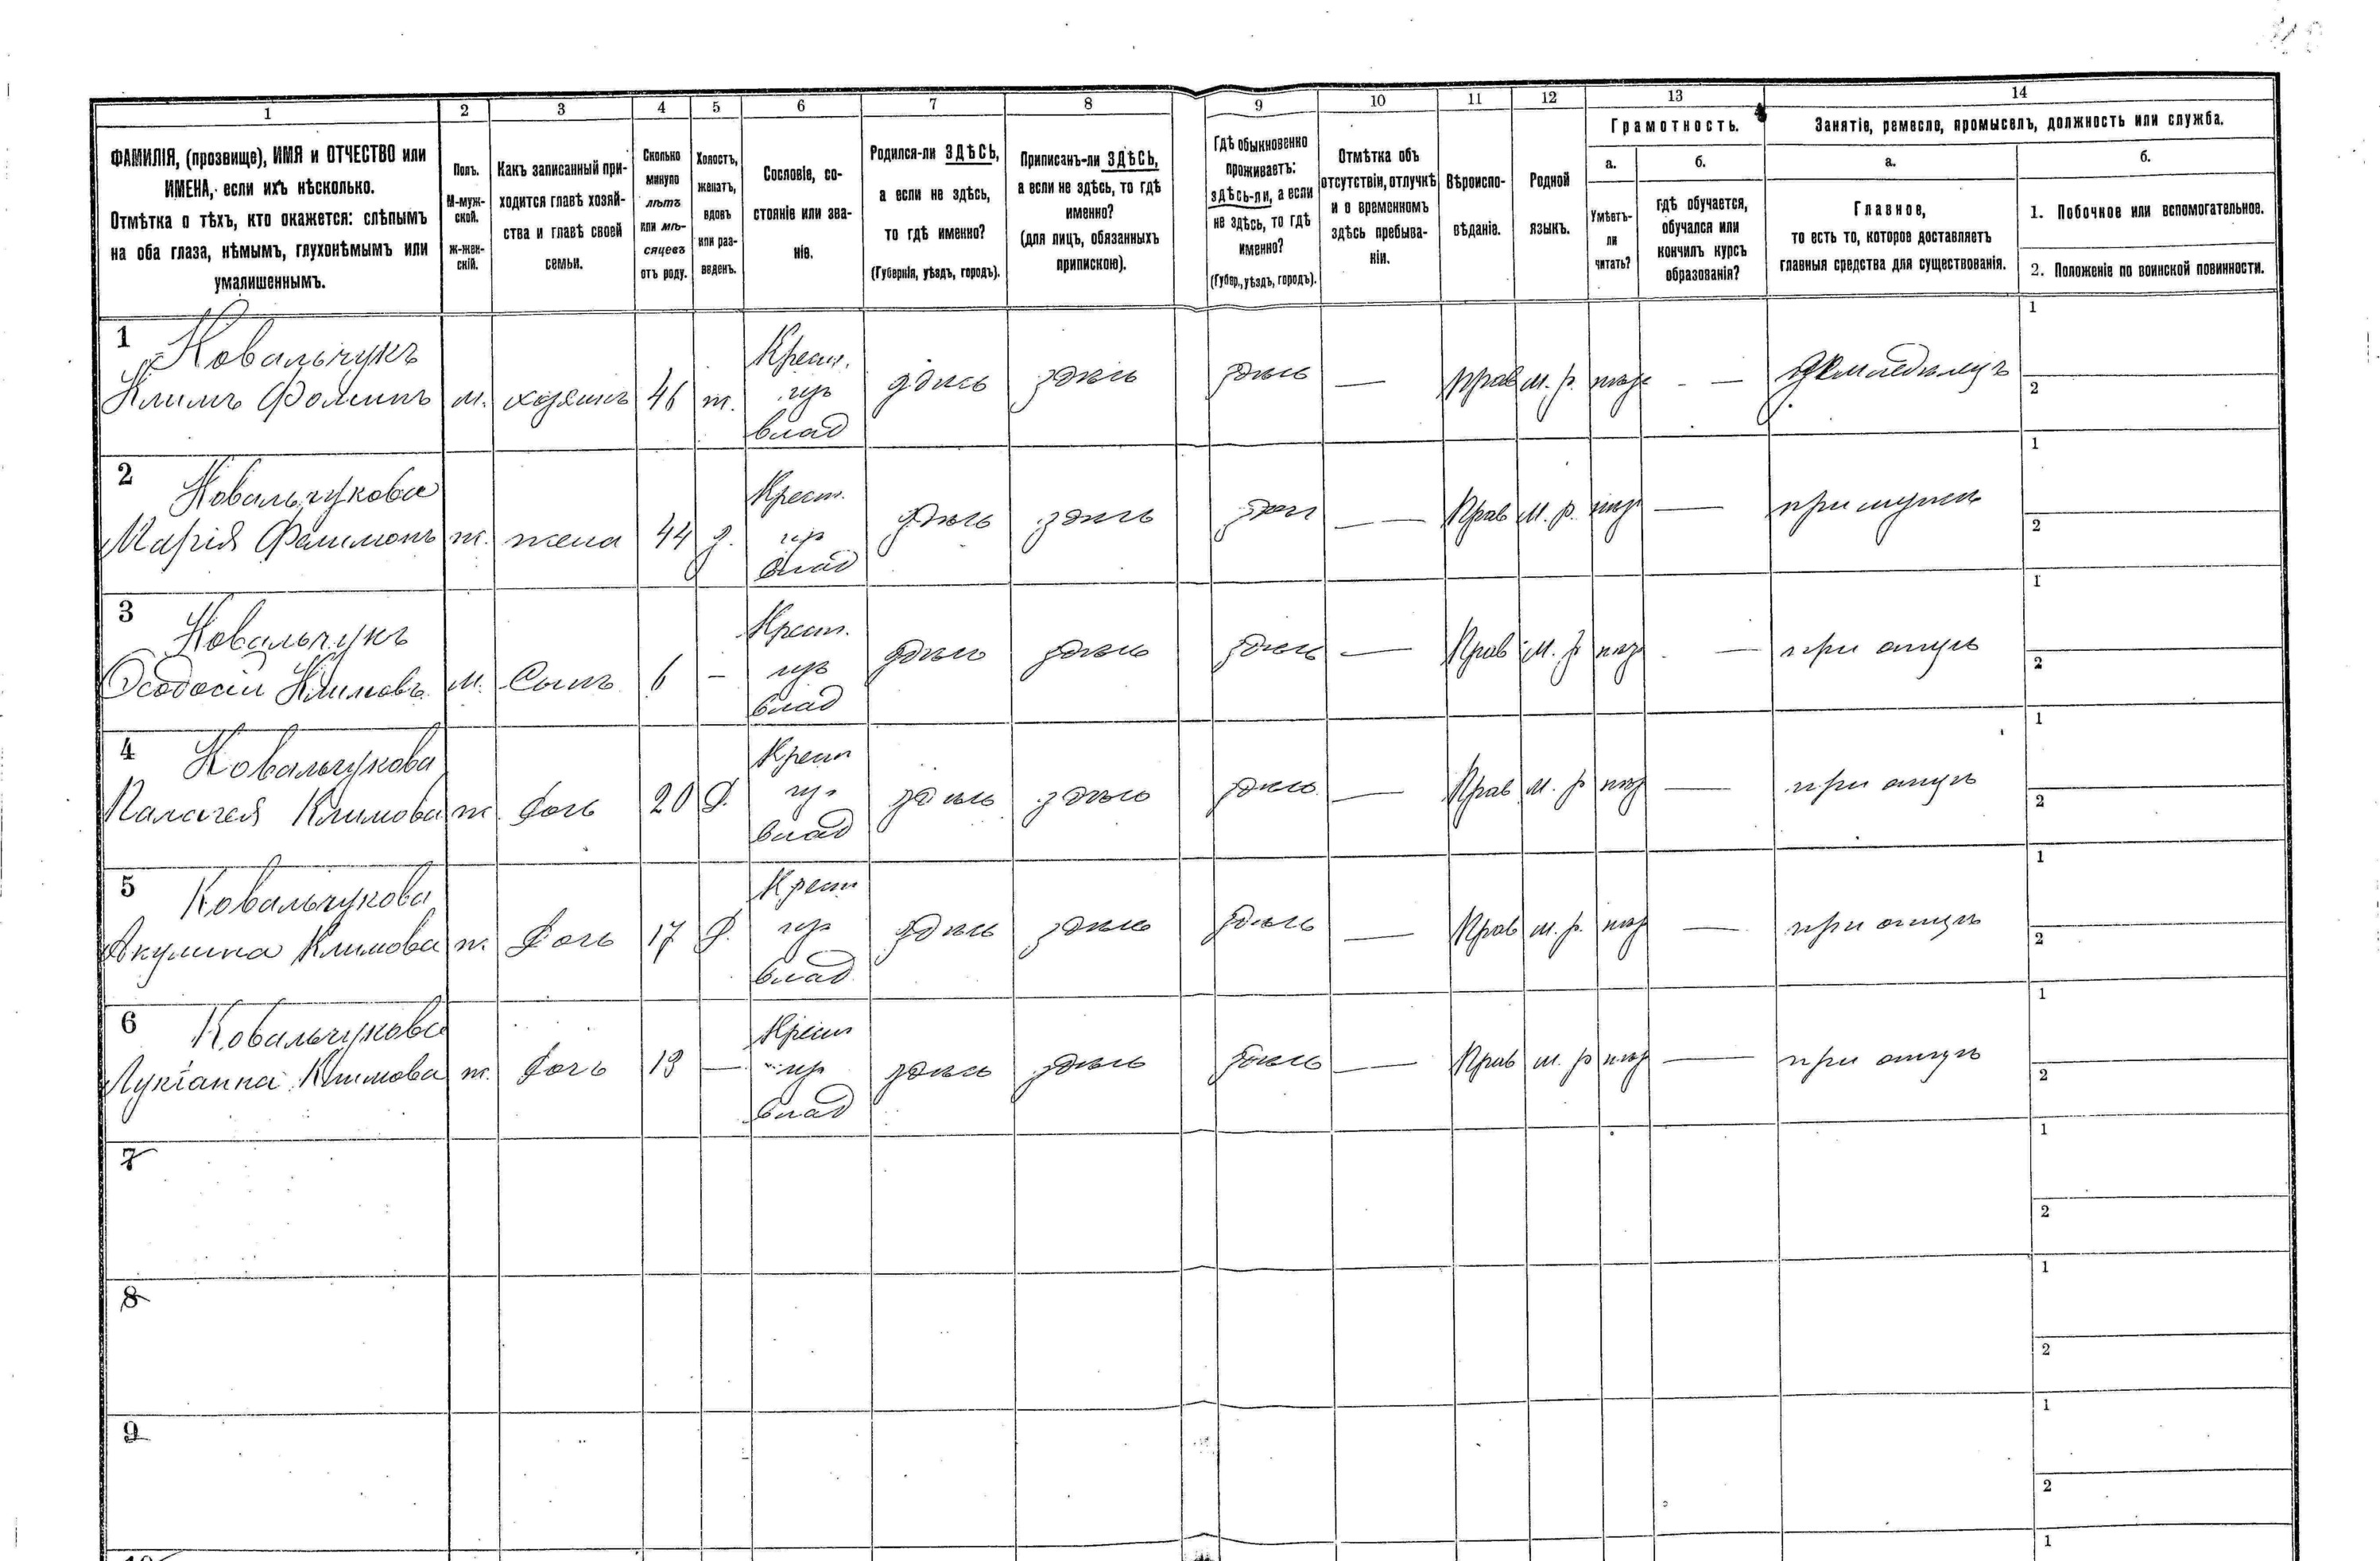 1 2 3 4 5 6 7 8 9 10 11 12 13 14
ФАМИЛІЯ, (прозвище), ИМЯ и ОТЧЕСТВО или
ИМЕНА, если ихъ нѣсколько.
Отмѣтка о тѣхъ, кто окажется: слѣпымъ
на оба глаза, нѣмымъ, глухонѣмымъ или
умалишеннымъ.
Полъ.
М-муж-
ской.
ж-жен-
скій.
Какъ записанный при-
ходится главѣ хозяй-
ства и главѣ своей
семьи.
Сколько
минуло
лѣтъ
или мѣ-
сяцевъ
отъ роду.
Холостъ,
женатъ,
вдовъ
или раз-
веденъ.
Сословіе, со-
стояніе или зва-
ніе.
Родился-ли ЗДѢСЬ,
а если не здѣсь,
то гдѣ именно?
(Губернія, уѣздъ, городъ).
Приписанъ-ли ЗДѢСЬ,
а если не здѣсь, то гдѣ
именно?
(для лицъ, обязанныхъ
припискою).
Гдѣ обыкновенно
проживаетъ:
здѣсь-ли, а если
не здѣсь, то гдѣ
именно?
(Губер., уѣздъ, городъ).
Отмѣтка объ
отсутствіи, отлучкѣ
и о временномъ
здѣсь пребыва-
ніи.
Вѣроиспо-
вѣданіе.
Родной
языкъ.
Грамотность.
а.
Умѣетъ-
ли
читать?
б.
гдѣ обучается,
обучался или
кончилъ курсъ
образованія?
Занятіе, ремесло, промыселъ, должность или служба.
а.
Главное,
то есть то, которое доставляетъ
главныя средства для существованія.
б.
1. Побочное или вспомогательное.
2. Положеніе по воинской повинности.
1 Ковальчукъ Крест. 1
Климъ Фоминъ м. хозяинъ 46 ж. изъ здѣсь здѣсь здѣсь — Прав м. р. — 2
влад
2 Ковальчукова Крест. 1
Марія Филимонъ ж. жена 44 з. изъ здѣсь здѣсь здѣсь — — Прав м. р. — при мужѣ 2
влад
3 Ковальчукъ Крест. 1
Ѳеодосій Климовъ м. Сынъ 6 — изъ здѣсь здѣсь здѣсь — Прав м. р — при отцѣ 2
влад
4 Ковальчукова Крест 1
Палагея Климова ж. Дочь 20 Д. изъ здѣсь здѣсь здѣсь — Прав м. р — при отцѣ 2
влад
5 Ковальчукова Крест 1
Акулина Климова ж. Дочь 17 Д. изъ здѣсь здѣсь здѣсь — Прав м. р. — при отцѣ 2
влад
6 Ковальчукова Крест 1
Лукіанна Климова ж. Дочь 13 — изъ здѣсь здѣсь здѣсь — Прав м. р — при отцѣ 2
влад
7 1
2
8 1
2
9 1
2
1